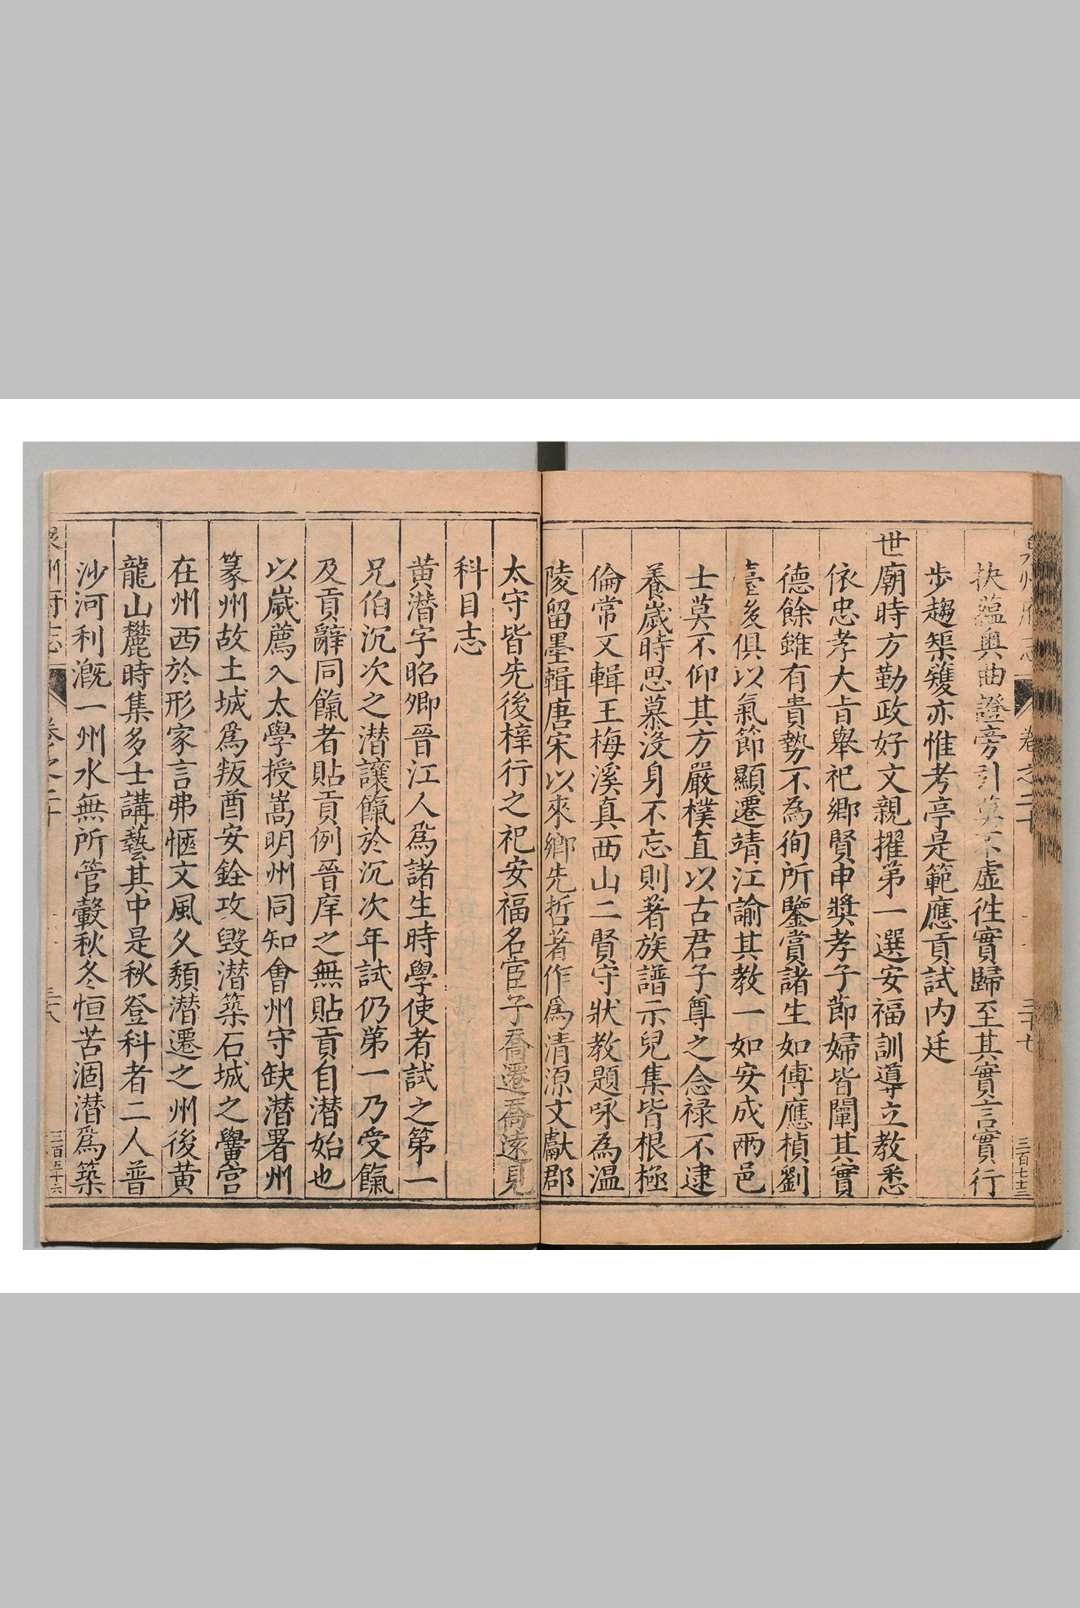 抉蘊奧曲證旁引莫不虛徃實歸至其實言實行
步趨榘矱亦惟考亭是範應貢試内廷
世廟時方勤政好文親擢第一選安福訓導立教悉
依忠孝大㫖舉祀鄉賢申獎孝子節婦皆闡其實
德餘雖有貴勢不為徇所鑒賞諸生如傅應楨劉
臺後俱以氣節顯遷靖江諭其教一如安成兩邑
士莫不仰其方嚴樸直以古君子尊之念禄不逮
養歲時思慕沒身不忘則著族譜示兒集皆根極
倫常又輯王梅溪真西山二賢守狀教題咏為溫
陵留墨輯唐宋以來鄉先哲著作爲清源文獻郡
太守皆先後梓行之祀安福名宦子喬遷喬遠見
科目志
黄潜字昭卿晉江人爲諸生時學使者試之第一
兄伯沉次之潜讓餼於沉次年試仍第一乃受餼
及貢辭同餼者貼貢例晉庠之無貼貢自潜始也
以歲薦入太學授嵩明州同知會州守缺潜署州
篆州故土城爲叛酋安銓攻毀潜築石城之黌宮
在州西於形家言弗愜文風久頽潜遷之州後黄
龍山麓時集多士講藝其中是秋登科者二人普
沙河利漑一州水無所管轂秋冬恒苦涸潜爲築
泉州府志 卷之二十